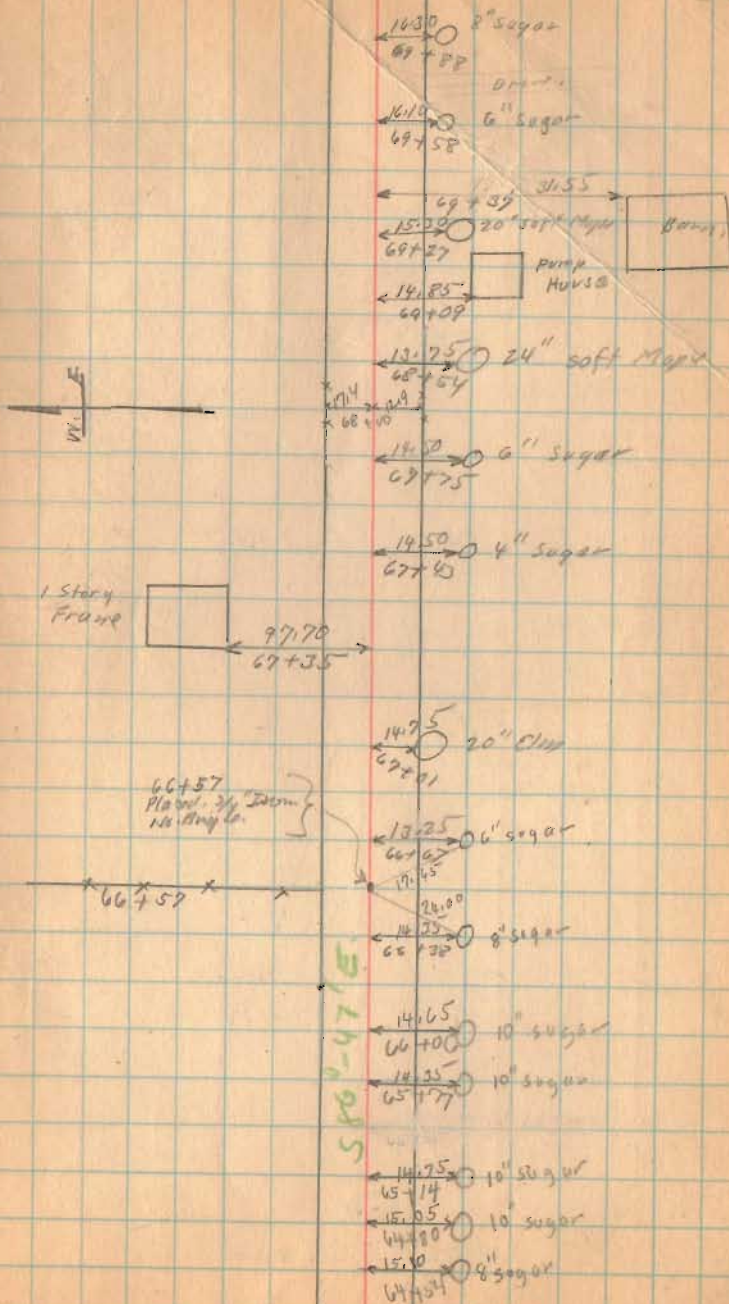 16.30 8" Sugar
69+88
16.10 6" Sugar
69+58
31.55
69+37 Barn
15.30 20" soft Maple
69+27
Pump
House
14.85
69+09
13.75 24" soft Maple
68+54
W. E.
17.4 12.9
68+00
14.50 6" Sugar
67+75
14.50 4" Sugar
67+43
1 Story
Frame
97.70
67+35
14.75 20" Elm
67+01
66+57
Placed 3/4" Iron
No Angle.
13.25 6" sugar
66+67
17.65
66+57
24.00
14.55 8" sugar
66+38
S 86°-47' E.
14.65 10" sugar
66+06
14.35 10" sugar
65+77
14.75 10" sugar
65+14
15.05 10" sugar
64+80
15.10 8" sugar
64+54